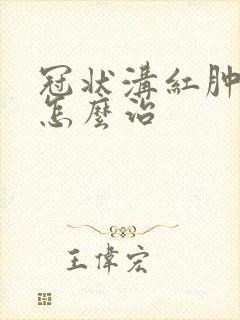 冠状溝紅肿
怎麼治
王偉宏